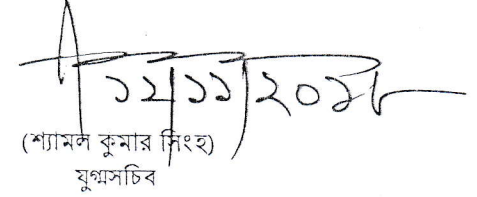 ১২/১১/২০১৮
(শ্যামল কুমার সিংহ)
যুগ্মসচিব